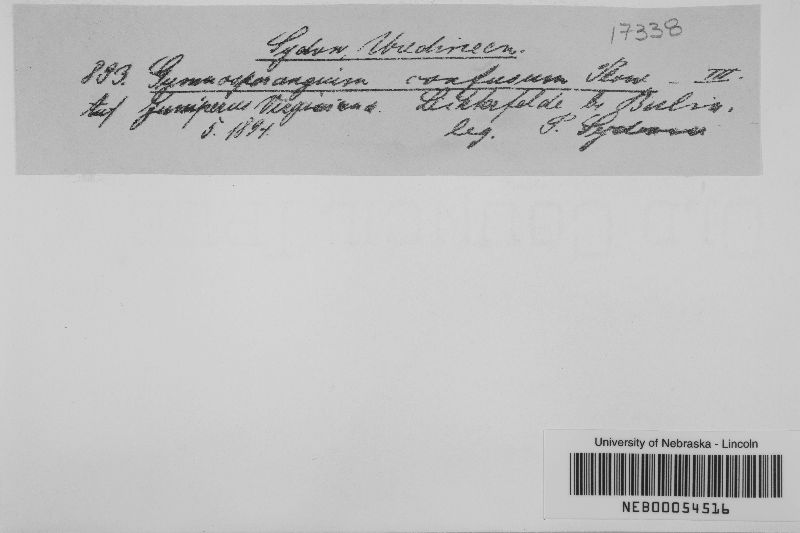 17338
Sydow, Uredineen.
893. Gymnosporangium confusum Plow. - III.
Auf Juniperus Virginiana. Lichterfelde b. Berlin.
5. 1894. leg. P. Sydow
University of Nebraska - Lincoln
NEB00054516